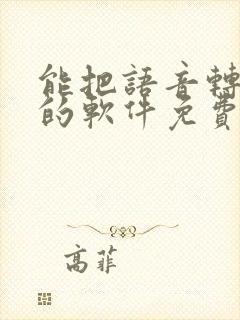 能把語音轉
的軟件免費
高菲